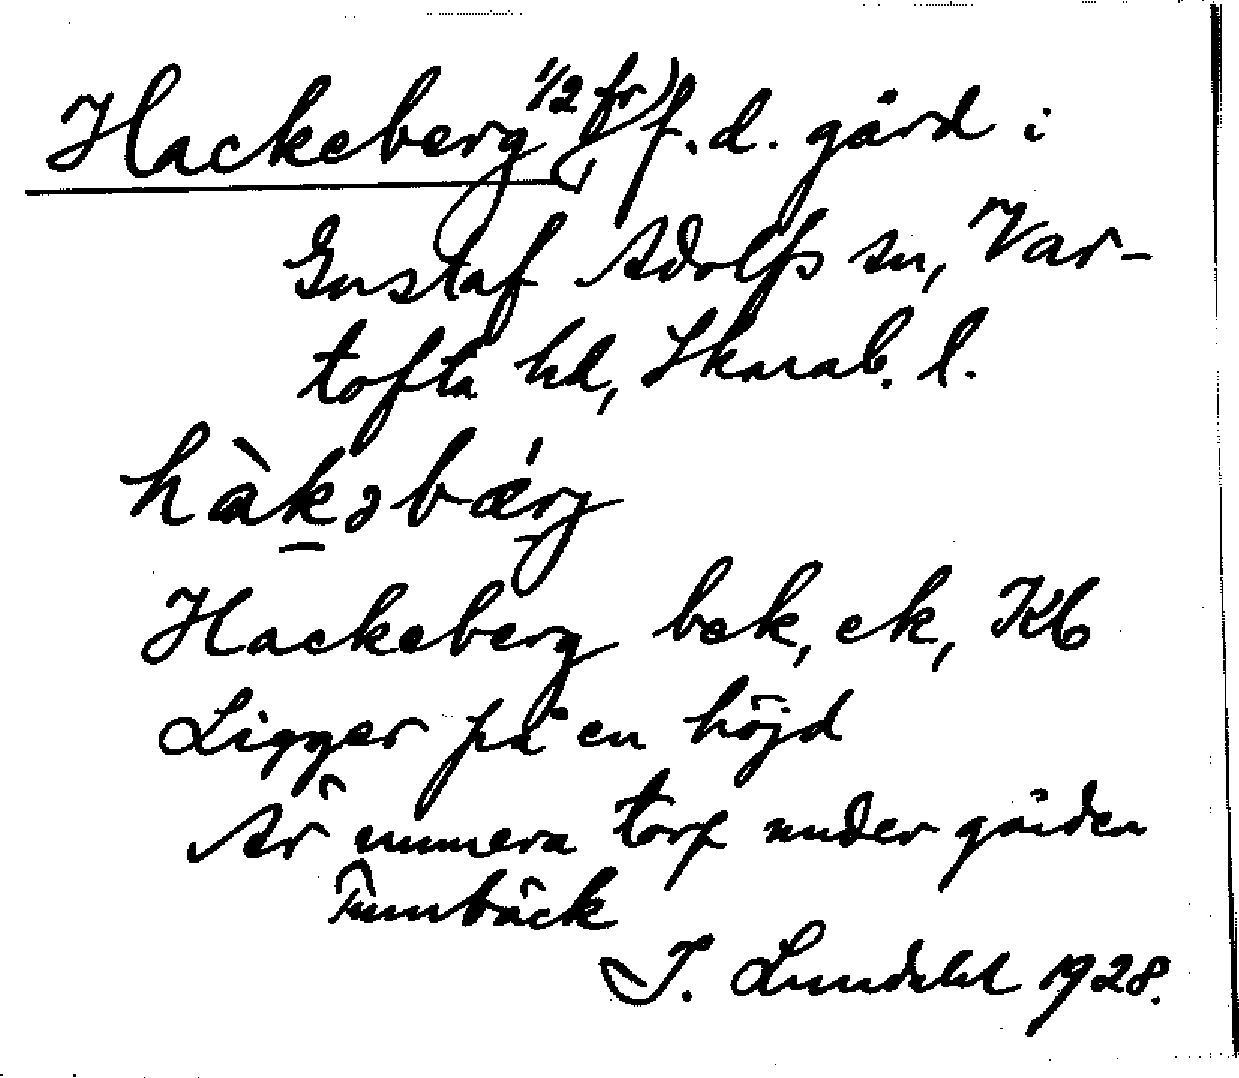 Hackeberg 1/2 fr) f. d. gård i
Gustaf Adolfs sn, Var-
tofta hd, Skarab. l.
hàkəbǽrj
Hackeberg bek, ek, Kb
Ligger på en höjd
Är numera torp under gården
Tunnbäck
J. Lundahl 1928.